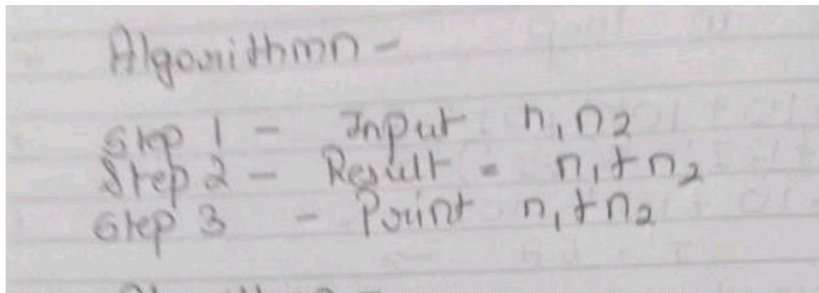 Algorithmn -
Step 1 - Input n₁ n₂
Step 2 - Result = n₁ + n₂
Step 3 - Print n₁ + n₂